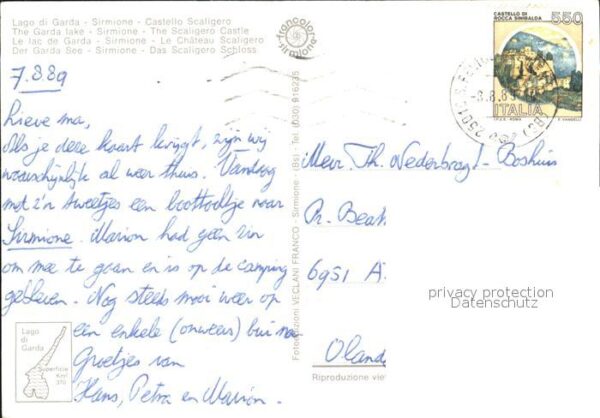 Lago di Garda - Sirmione - Castello Scaligero
The Garda lake - Sirmione - The Scaligero Castle
Le lac de Garda - Sirmione - Le Château Scaligero
Der Garda See - Sirmione - Das Scaligero Schloss
francolor
sirmione
CASTELLO DI
ROCCA SINIBALDA
550
ITALIA
I.P.Z.S. - ROMA
E. VANGELLI
7.8.89
Lieve ma,
Als je deze kaart krijgt, zijn wij
waarschijnlijk al weer thuis. Vandaag
met z'n tweetjes een boottochtje naar
Sirmione. Marion had geen zin
om mee te gaan en is op de camping
gebleven. Nog steeds mooi weer op
een enkele (onweers) bui na
Groetjes van
Hans, Petra en Marion.
Lago
di
Garda
Superficie
Kmq
370
Fotoedizioni VECLANI FRANCO - Sirmione - (Bs) - Tel. (030) 916235
Mevr. Th. Nederbragt-Boshuis
6951 A
Oland
privacy protection
Datenschutz
Riproduzione vie